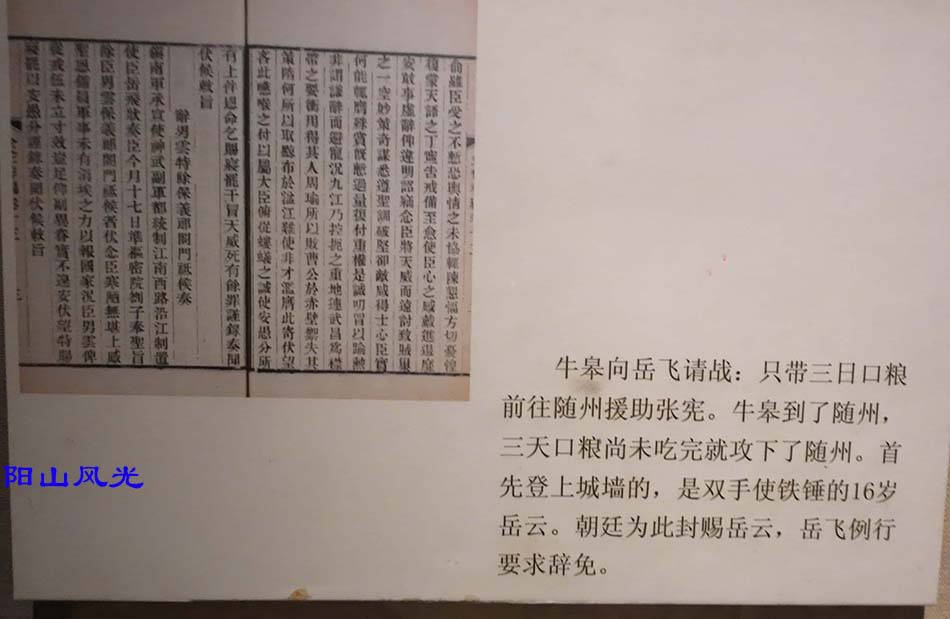 俞雖臣受之不慙恐輿情之未協輒陳懇愊方切憂惶
蒙天語之丁寧告戒備至愈使臣心之感戴進退靡
安敢事虛辭仰違明詔竊念臣將天威而遠討致賊巢
之一空妙策奇謀悉遵聖訓破堅卻敵咸得士心臣實
何能輒膺殊賞旣慙過量復付重權是誠叨冒以踰
非謂謙辭而避寵況九江乃控扼之重地連武昌爲襟
帶之要衝用得其人周瑜所以敗曹公於赤壁禦失其
策隋何所以取於湓江雖使非才濫膺此寄伏望
吝此嚥喉之付以屬大臣俯從螻蟻之誠使安愚分所
有上件恩命乞賜寢罷干冒天威死有餘罪謹錄奏聞
伏候敕旨
辭男雲特除保義郎閤門祗候奏
鎮南軍承宣使神武副軍都統制江南西路沿江制置
使臣岳飛狀奏臣今月十七日準樞密院劄子奉聖旨
除臣男雲保義郎閤門祗候者伏念臣寒陋無堪上感
聖恩備員軍事未有涓埃之力以報國家況臣男雲俾
從戎伍未立寸效豈足仰副異眷實不遑安伏望特賜
寢罷以安愚分謹錄奏聞伏候敕旨
牛皋向岳飞请战：只带三日口粮
前往随州援助张宪。牛皋到了随州，
三天口粮尚未吃完就攻下了随州。首
先登上城墙的，是双手使铁锤的16岁
岳云。朝廷为此封赐岳云，岳飞例行
要求辞免。
阳山风光